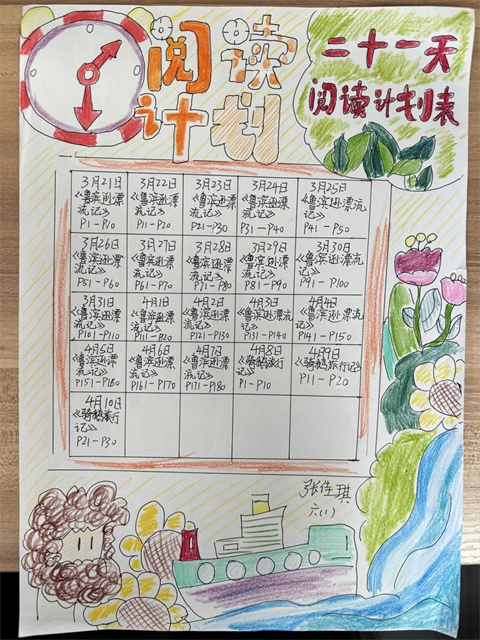 阅读
计划
二十一天
阅读计划表
3月21日
《鲁滨逊漂
流记》
P1-P10
3月22日
《鲁滨逊漂
流记》
P11-P20
3月23日
《鲁滨逊漂
流记》
P21-P30
3月24日
《鲁滨逊漂
流记》
P31-P40
3月25日
《鲁滨逊漂流
记》
P41-P50
3月26日
《鲁滨逊漂
流记》
P51-P60
3月27日
《鲁滨逊漂
流记》
P61-P70
3月28日
《鲁滨逊漂
流记》
P71-P80
3月29日
《鲁滨逊漂
流记》
P81-P90
3月30日
《鲁滨逊漂流
记》
P91-P100
3月31日
《鲁滨逊漂
流记》
P101-P110
4月1日
《鲁滨逊漂
流记》
P111-P120
4月2日
《鲁滨逊漂
流记》
P121-P130
4月3日
《鲁滨逊漂流
记》
P131-P140
4月4日
《鲁滨逊漂流
记》
P141-P150
4月5日
《鲁滨逊漂
流记》
P151-P160
4月6日
《鲁滨逊漂
流记》
P161-P170
4月7日
《鲁滨逊漂
流记》
P171-P180
4月8日
《骑鹅旅行
记》
P1-P10
4月9日
《骑鹅旅行记》
P11-P20
4月10日
《骑鹅旅行
记》
P21-P30
张佳琪
六(1)